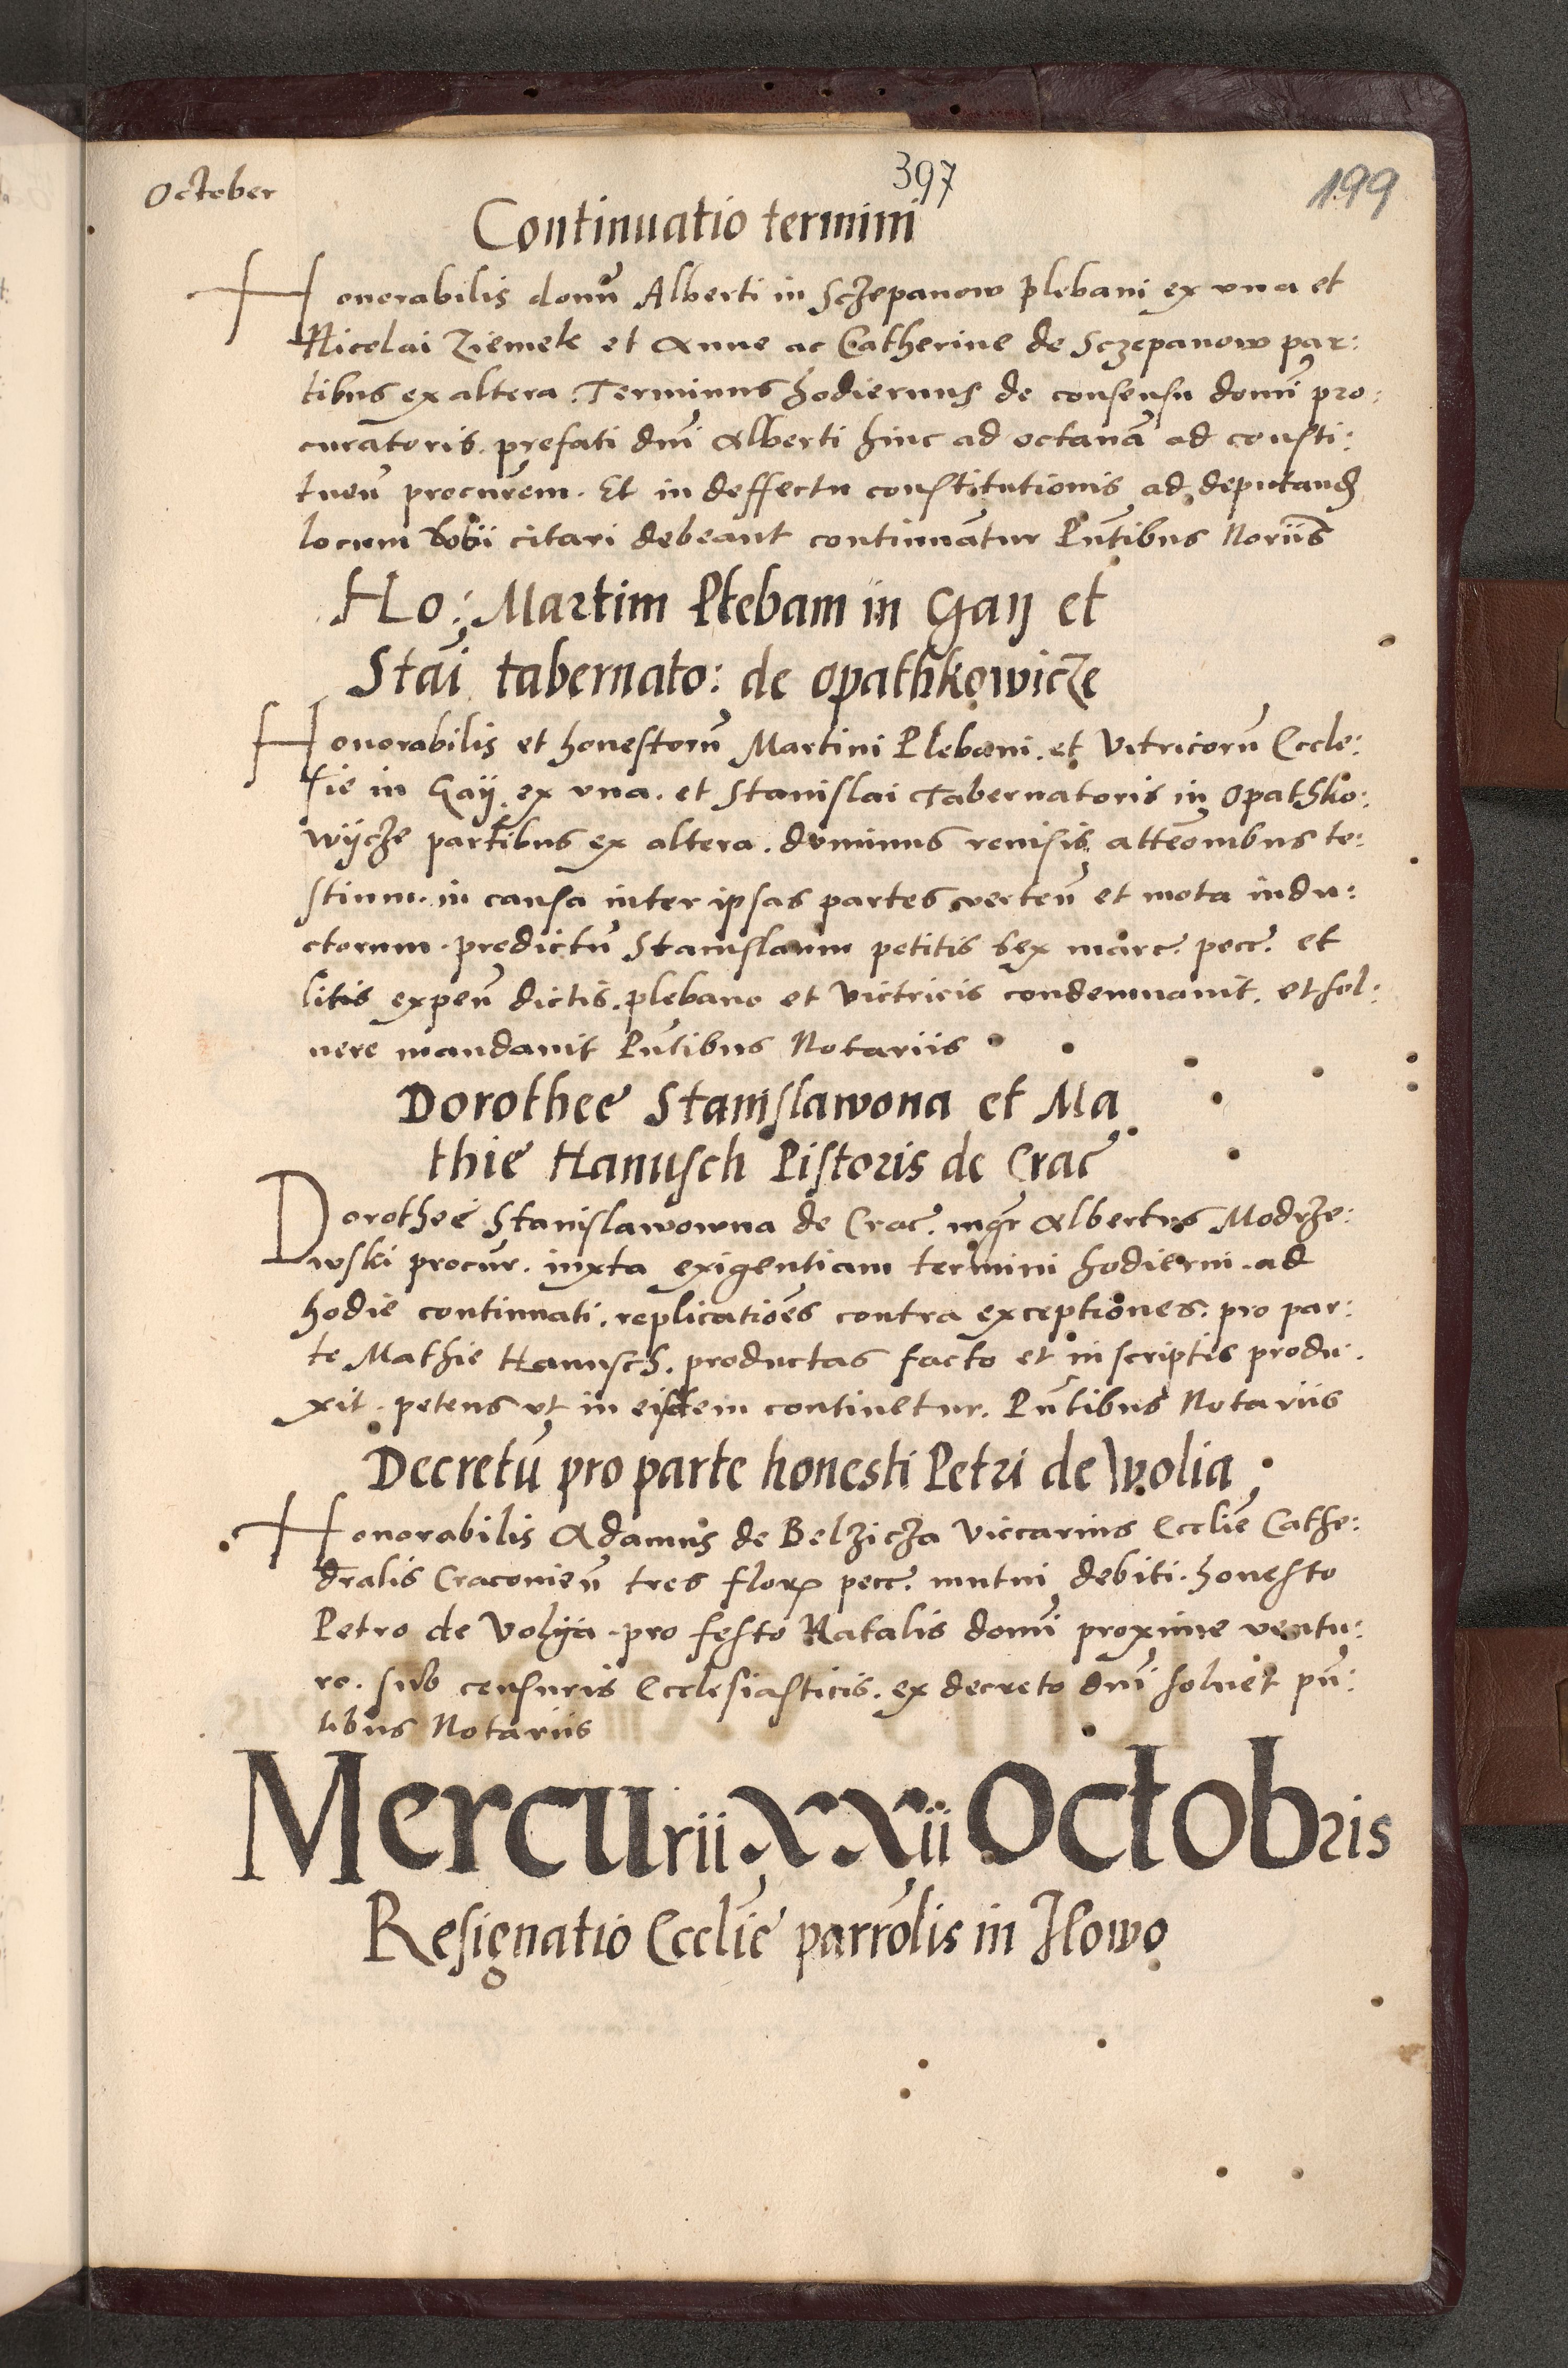 October
397
199
Continuatio termini
Honorabilis domĩ Alberti in Sczepanow plebani ex vna et
Nicolai Ziemek et Anne ac Catherine de Sczepanow par:
tibus ex altera. Terminus hodiernus de consensu domĩ pro:
curatoris. prefati dnĩ Alberti hinc ad octauã ad consti:
tueñ procurẽm. Et in deffectu constitutionis ad deputanđ
locum citari debeant continuãtur Pñtibus Noriis
Ho: Martini Plebani in Gay et
Stãi tabernato: de opathkowicze
Honorabilis et honestorũ Martini Plebani. et Vitricorũ Eccle:
sie in Gaÿ ex vna. et Stanislai Tabernatoris in Opathko:
wÿcze partibus ex altera. dominus reuisis atteõnibus te:
stium. in causa inter ipsas partes verteñ et mota indu:
ctorum. predictũ Stanislaum petitis sex marc. pecc. et
litis expeñ dictis. plebano et victricis condemnauit. et sol:
uere mandauit Pñtibus Notariis
Dorothee Stanislawona et Ma
thie Hanusch Pistoris de Crac
Dorothee Stanislawowna de Crac. mgr Albertus Modrze:
wski procur. iuxta exigentiam termini hodierni. ad
hodie continuati. replicatiões contra exceptiones. pro par:
te Mathie Hanusch. productas facto et in scriptis produ:
xit. petens vt in eisdem continetur. Pñtibus Notariis
Decretũ pro parte honesti Petri de Wolia
Honorabilis Adamus de Belzicza viccarius Ecclie Cathe:
dralis Cracouieñ tres flor pecc. mutui debiti. honesto
Petro de Volÿa. pro festo Natalis domĩ proxime ventu:
ro. sub censuris Ecclesiasticis. ex decreto dnĩ soluet pñ:
tibus Notariis
Mercurii xxii Octobris
Resignatio Ecclie parrõlis in Ilowo